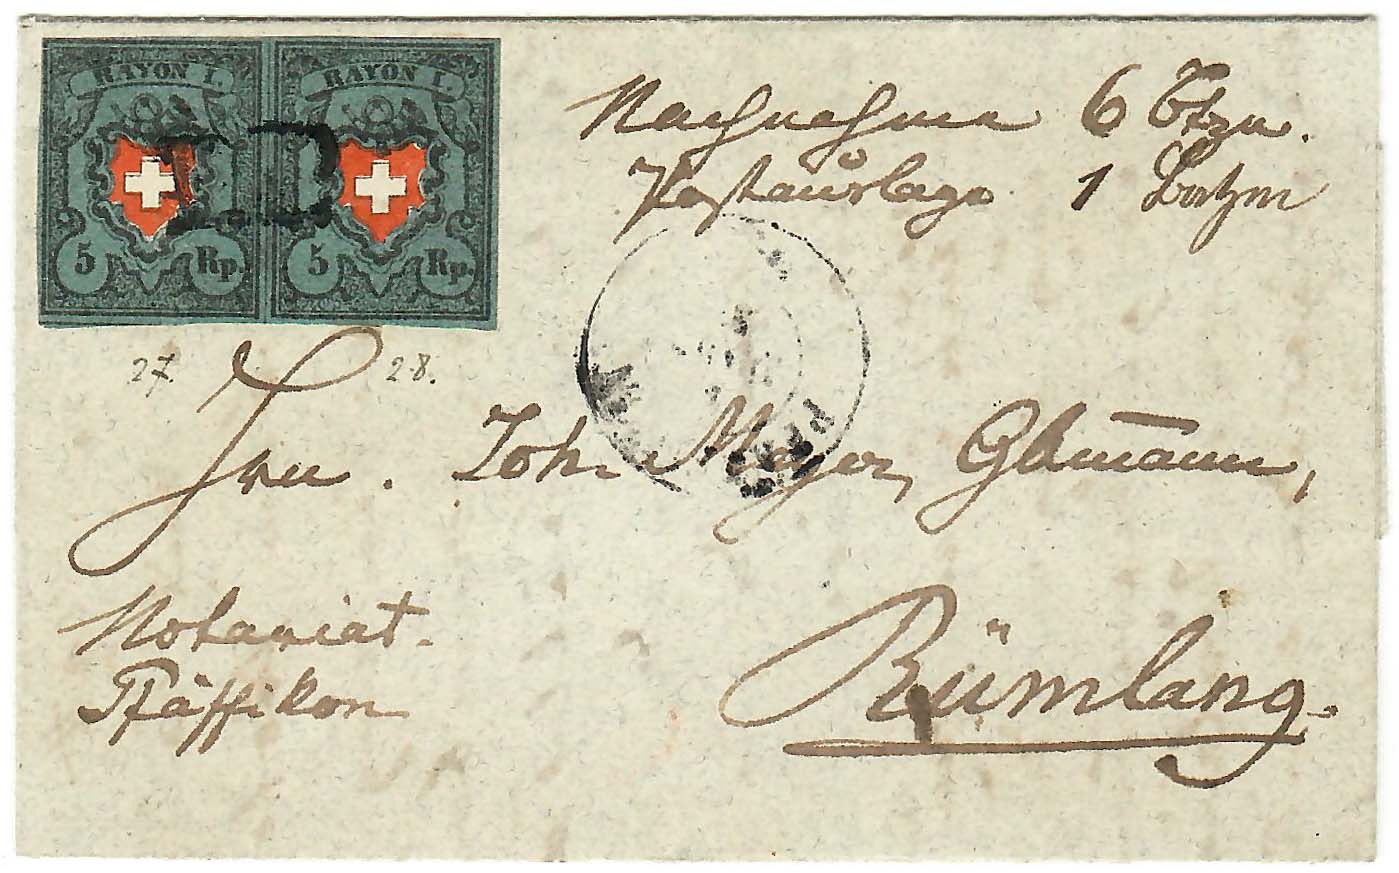 RAYON I. RAYON I.
5 Rp. 5 Rp.
P.P.
Nachnahme 6 Btzn.
Postauslage 1 Batzen
27. 28.
Hrn. Joh. Meyer, Gdmann,
Notariat.
Pfäffikon
Rümlang.